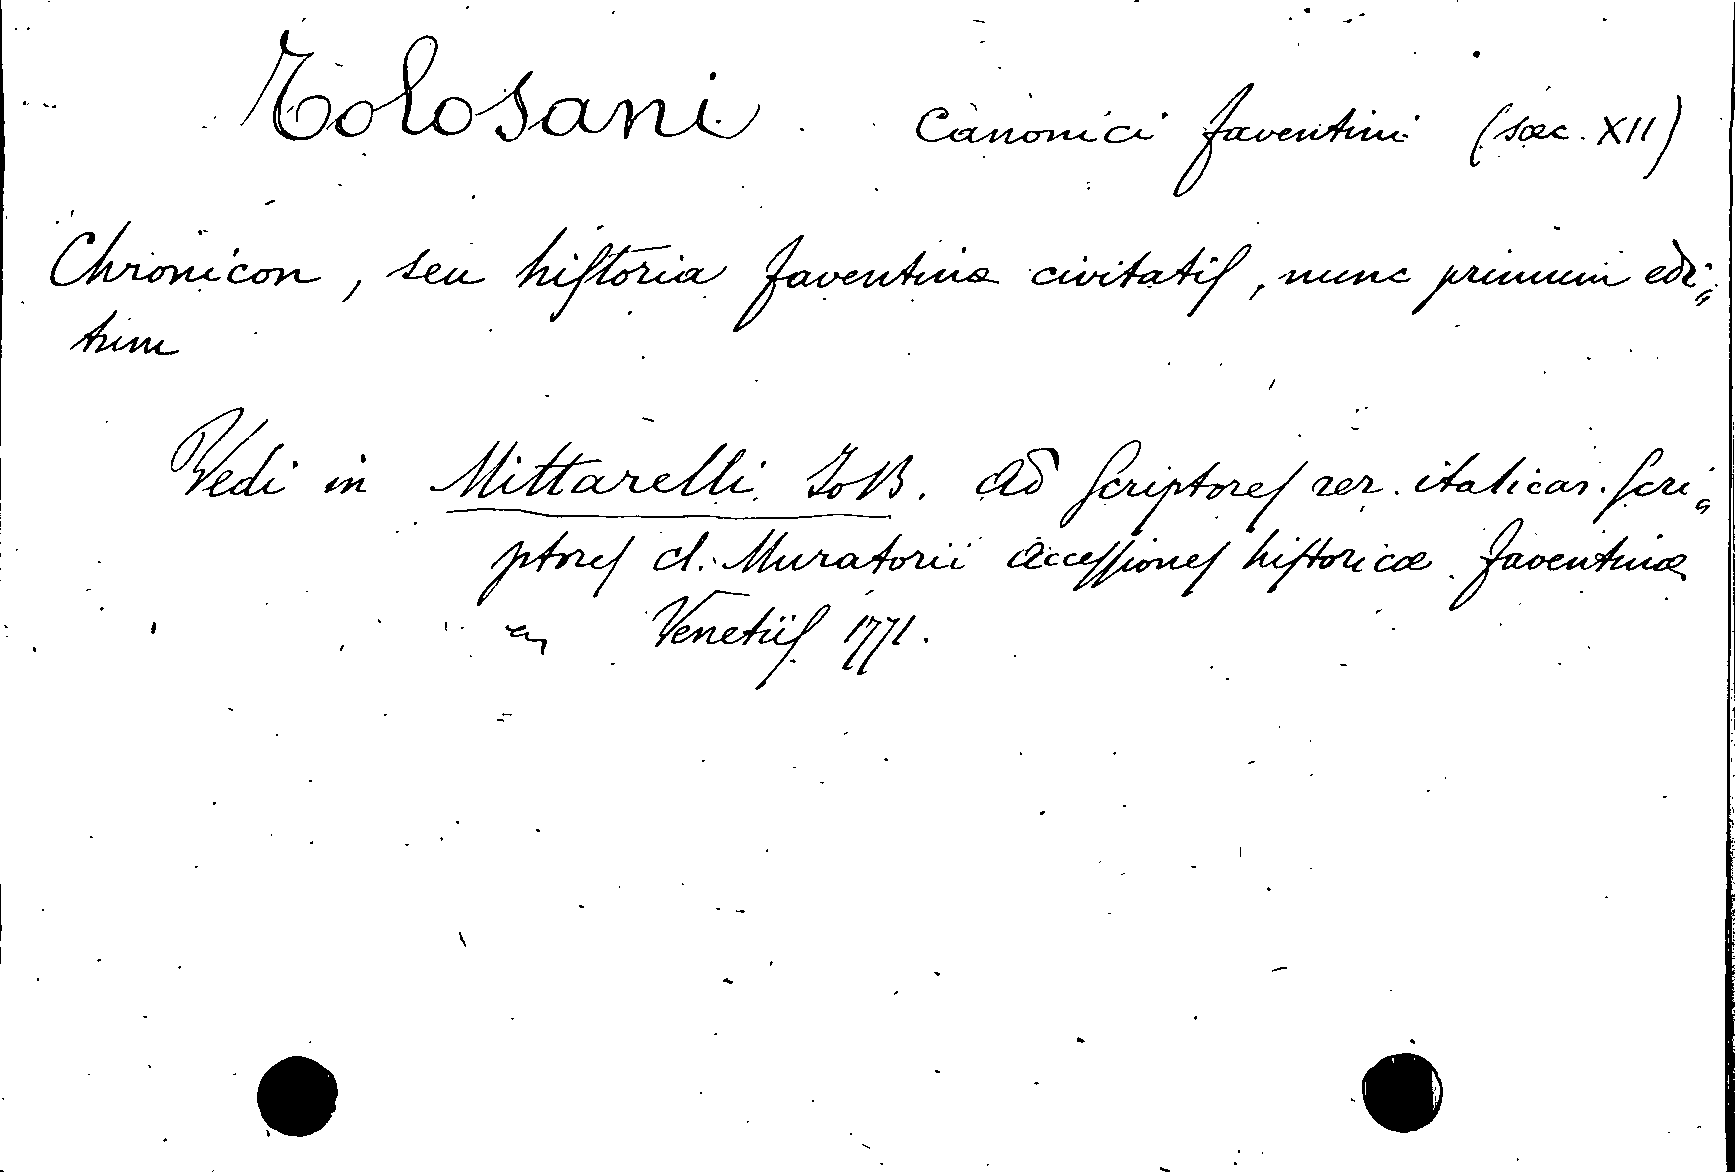 Tolosani Canonici faventini (sæc. XII)
Chronicon, seu hiſtoria faventinæ civitatiſ, nunc primum edi„
tum
Vedi in Mittarelli Jo B. Ad Scriptoreſ rer. italicar. ſcri„
ptoreſ cl. Muratorii acceſſioneſ hiſtoricæ faventinæ
Venetiiſ 1771.